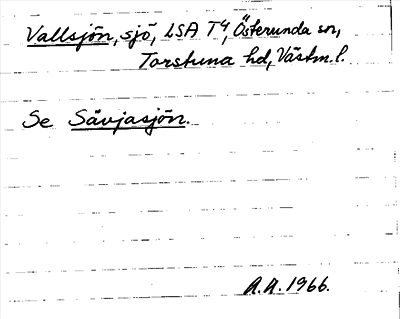 Vallsjön, sjö, LSA T4, Österunda sn,
Torstuna hd, Västm.l.
Se Sävjasjön.
A.A. 1966.